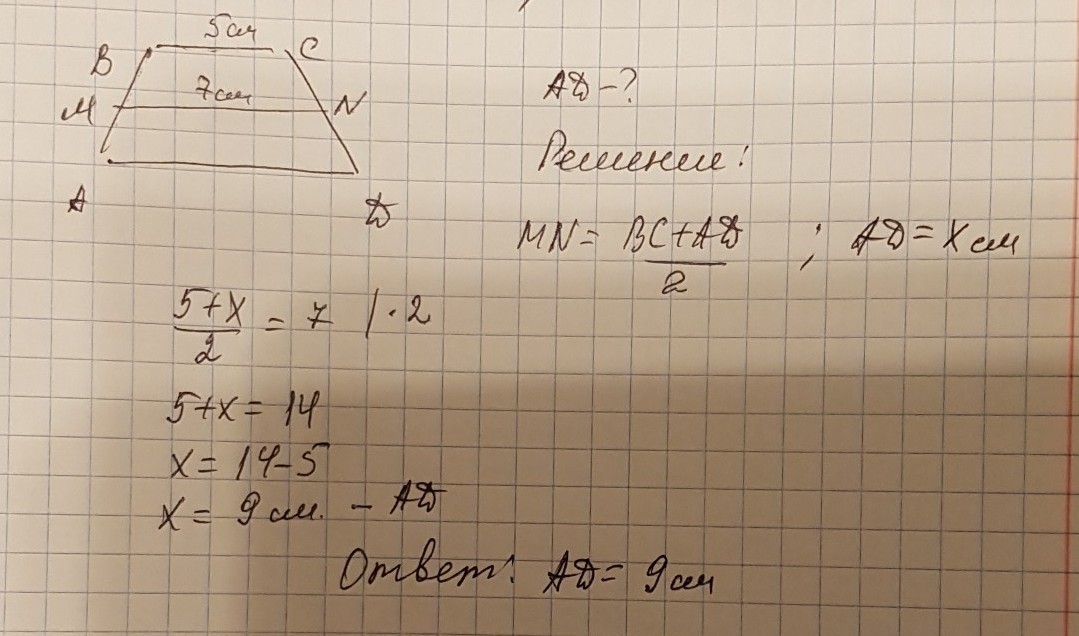 5см
B C
7см
M N
A D
AD-?
Решение:
MN = BC+AD/2 ; AD = x см
5+x/2 = 7 | · 2
5+x = 14
x = 14-5
x = 9 см. - AD
Ответ: AD = 9 см